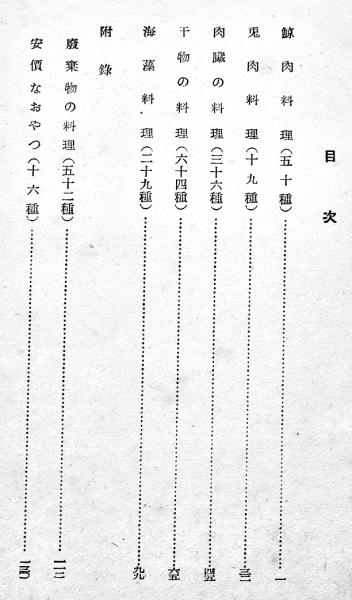 目次
鯨肉料理(五十種)…………一
兎肉料理(十九種)…………三二
肉臓の料理(三十六種)…………四五
干物の料理(六十四種)…………六五
海藻料理(二十九種)…………九九
附錄
廢棄物の料理(五十二種)…………一一二
安價なおやつ(十六種)…………